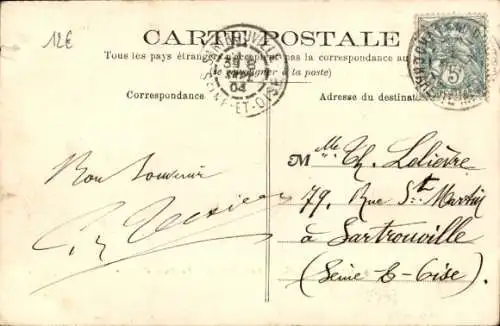 12€
CARTE POSTALE
Tous les pays étrangers n'acceptent pas la correspondance au
(se renseigner à la poste)
Correspondance
Adresse du destinat
SARTROUVILLE
04
SEINE-ET-OISE
5
Bon Souvenir
M lle Th. Lelièvre
79, Rue St. Martin
à Sartrouville
(Seine & Oise).